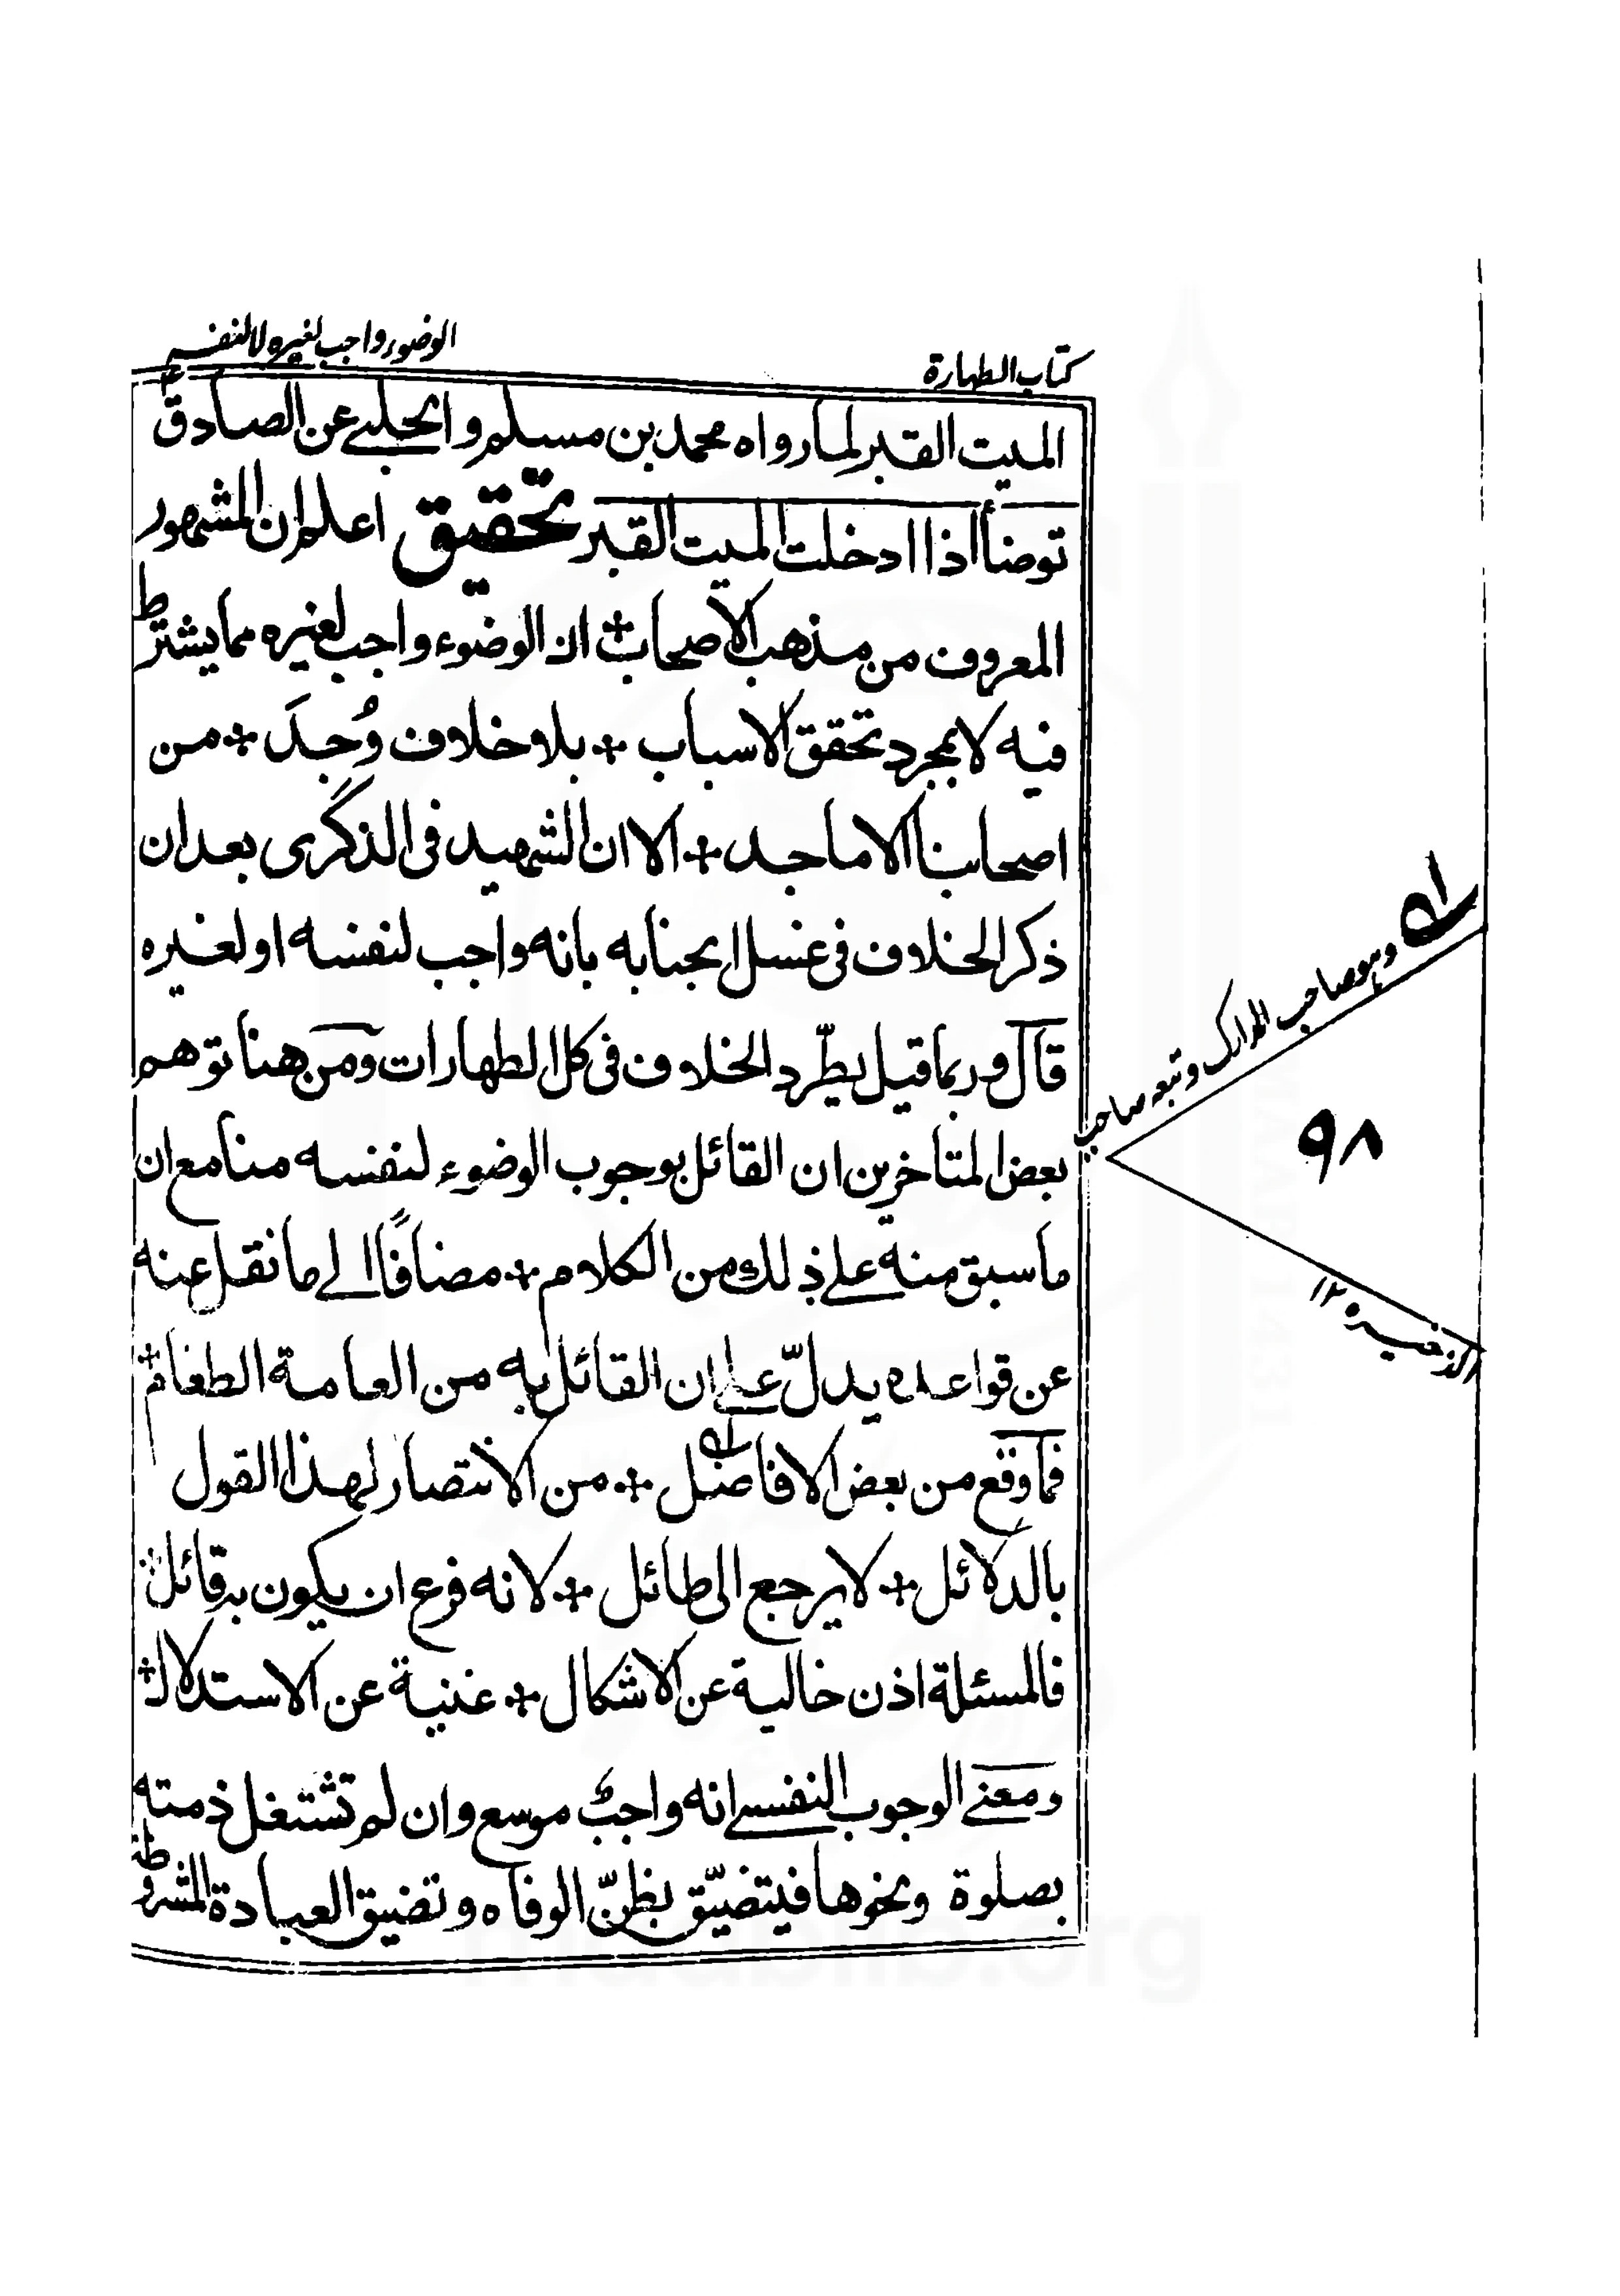 كتاب الطهارة
الوضوء واجب لغيره لا لنفسه
الميت القبر لما رواه محمد بن مسلم والحلبي عن الصادق ع
توضأ اذا ادخلت الميت القبر تحقيق اعلم ان المشهور
المعروف من مذهب الاصحاب ان الوضوء واجب لغيره مما يشترط
فيه لا بمجرد تحقق الاسباب بلا خلاف وُجِدَ من
اصحابنا الاماجد الا ان الشهيد فى الذكرى بعد ان
ذكر الخلاف فى غسل الجنابه بانه واجب لنفسه او لغيره
قال وربما قيل يطّرد الخلاف فى كل الطهارات ومن هنا توهم
بعض المتأخرين ان القائل بوجوب الوضوء لنفسه منا مع ان
ما سبق منه على ذلك من الكلام مضافًا الى ما نقل عنه
عن قواعده يدلّ على ان القائل به من العامة الطغام
فما وقع من بعض الافاضل من الانتصار لهذا القول
بالدلائل لا يرجع الى طائل لانه فرع ان يكون به قائل
فالمسئلة اذن خالية عن الاشكال غنية عن الاستدلال
ومعنى الوجوب النفسي انه واجبٌ موسع وان لم تشتغل ذمته
بصلوة ونحوها فيتضيّق بظنّ الوفاه وتضيق العبادة المشروطة
وهو صاحب المدارك وتبعه صاحب
٩٨
الذخيره ١٢